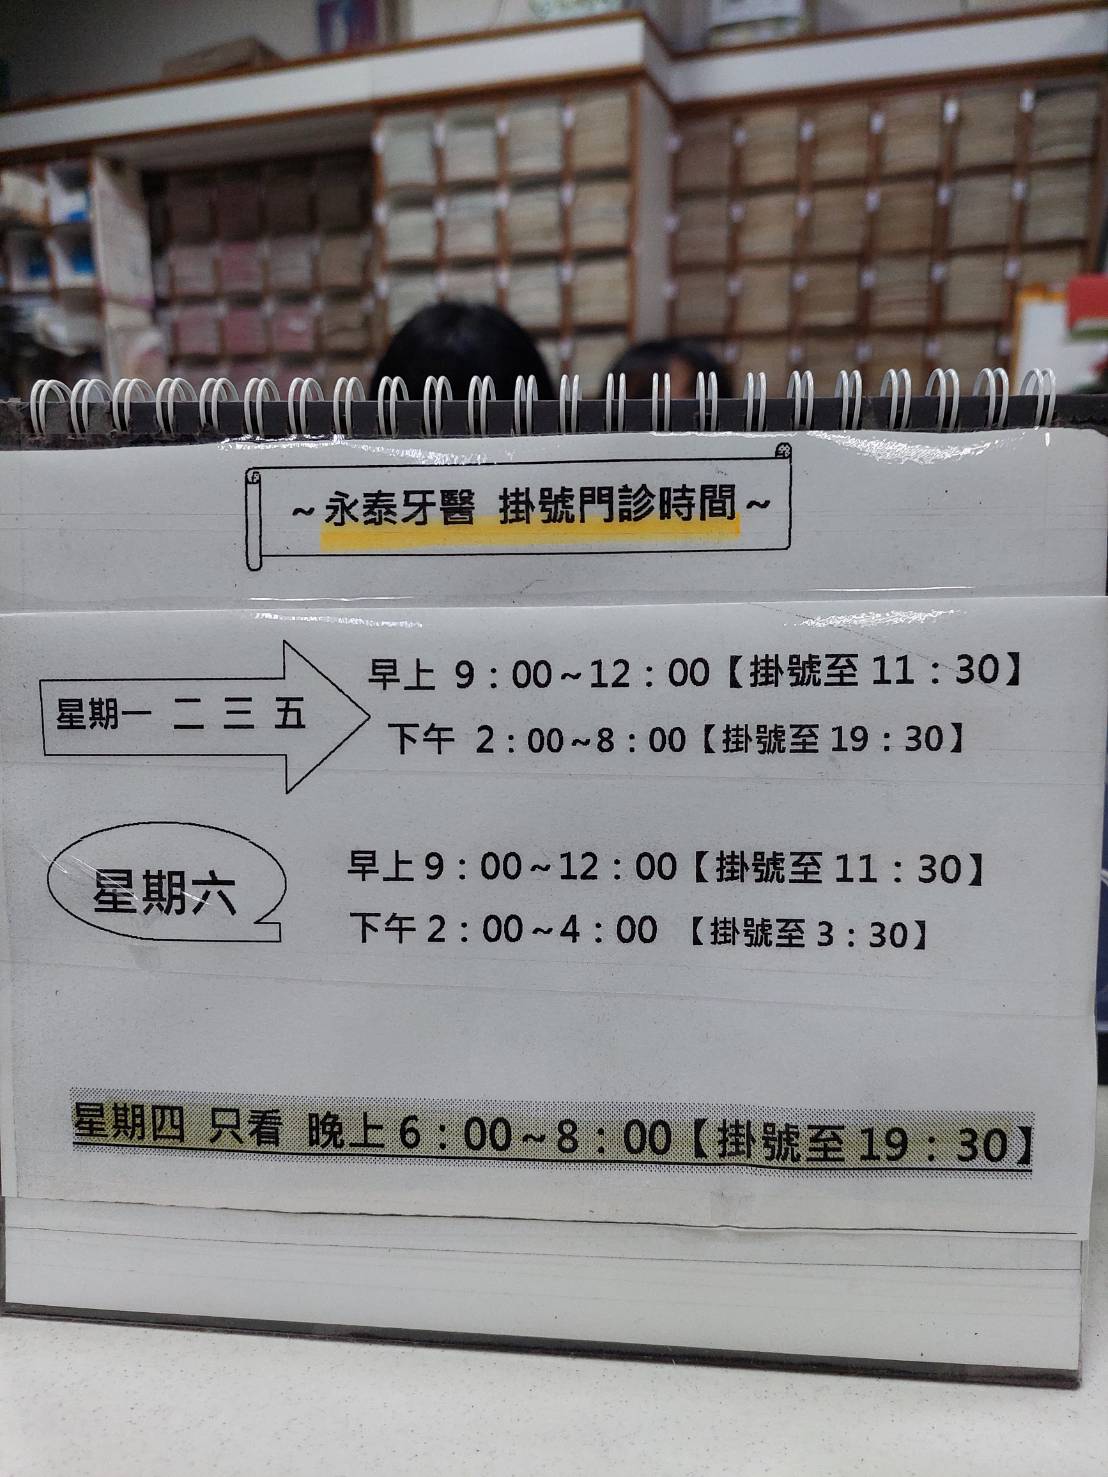 ~永泰牙醫 掛號門診時間~
星期一 二 三 五
早上 9：00~12：00【掛號至 11：30】
下午 2：00~8：00【掛號至 19：30】
星期六
早上 9：00~12：00【掛號至 11：30】
下午 2：00~4：00 【掛號至 3：30】
星期四 只看 晚上 6：00~8：00【掛號至 19：30】